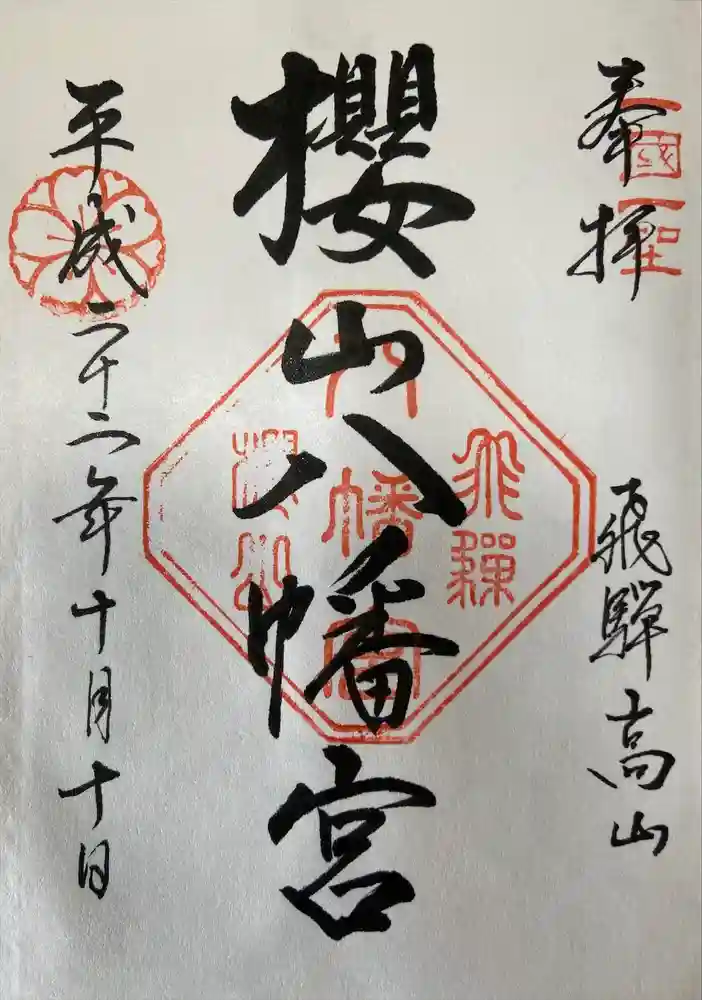 奉拝
飛驒高山
一國一社
櫻山八幡宮
飛驒
八幡宮
櫻山
平成二十二年十月十日